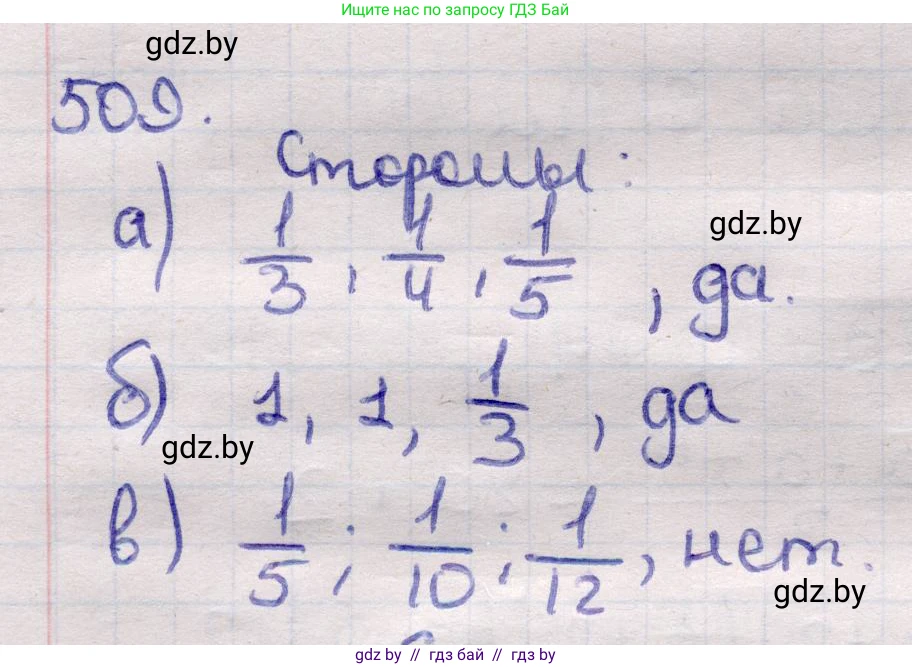 Ищите нас по запросу ГДЗ Бай
gdz.by
509.
Стороны:
а) 1/3, 1/4, 1/5, да.
gdz.by
б) 1, 1, 1/3, да
gdz.by
в) 1/5; 1/10; 1/12, нет.
gdz.by
gdz by // гдз бай // гдз by